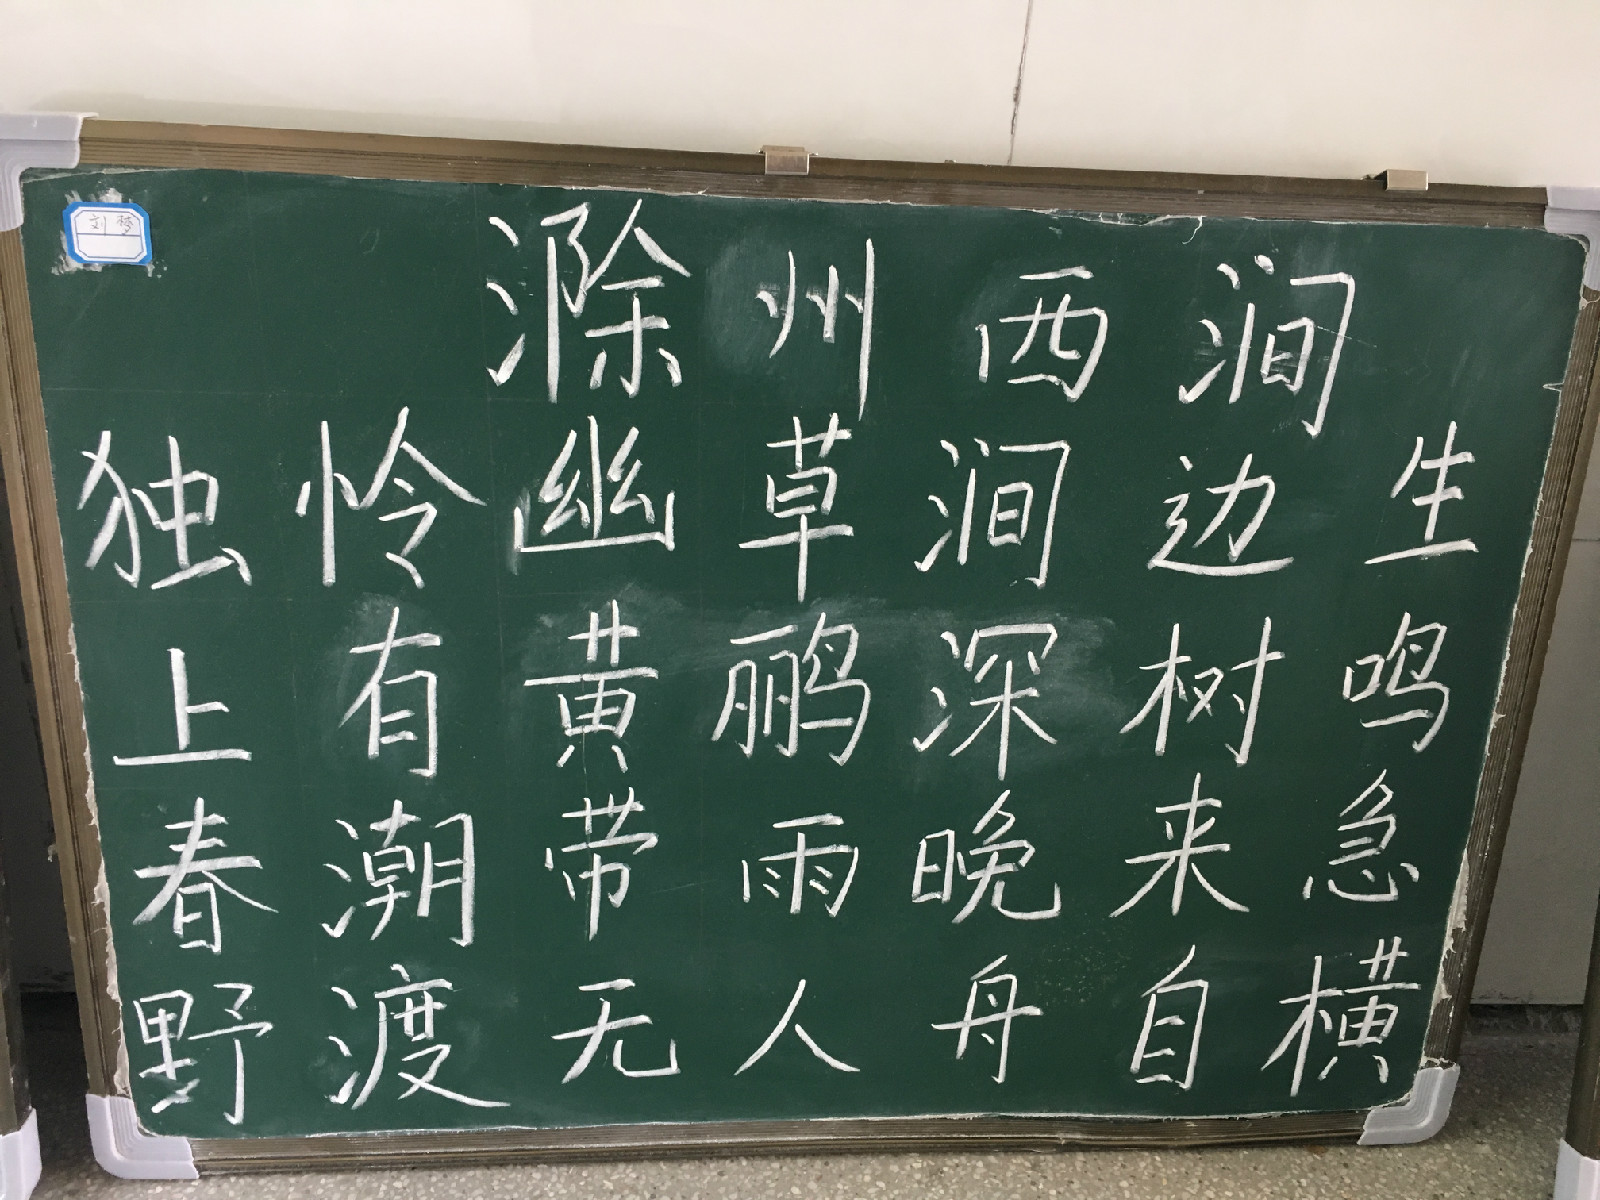 刘梦
滁州西涧
独怜幽草涧边生
上有黄鹂深树鸣
春潮带雨晚来急
野渡无人舟自横